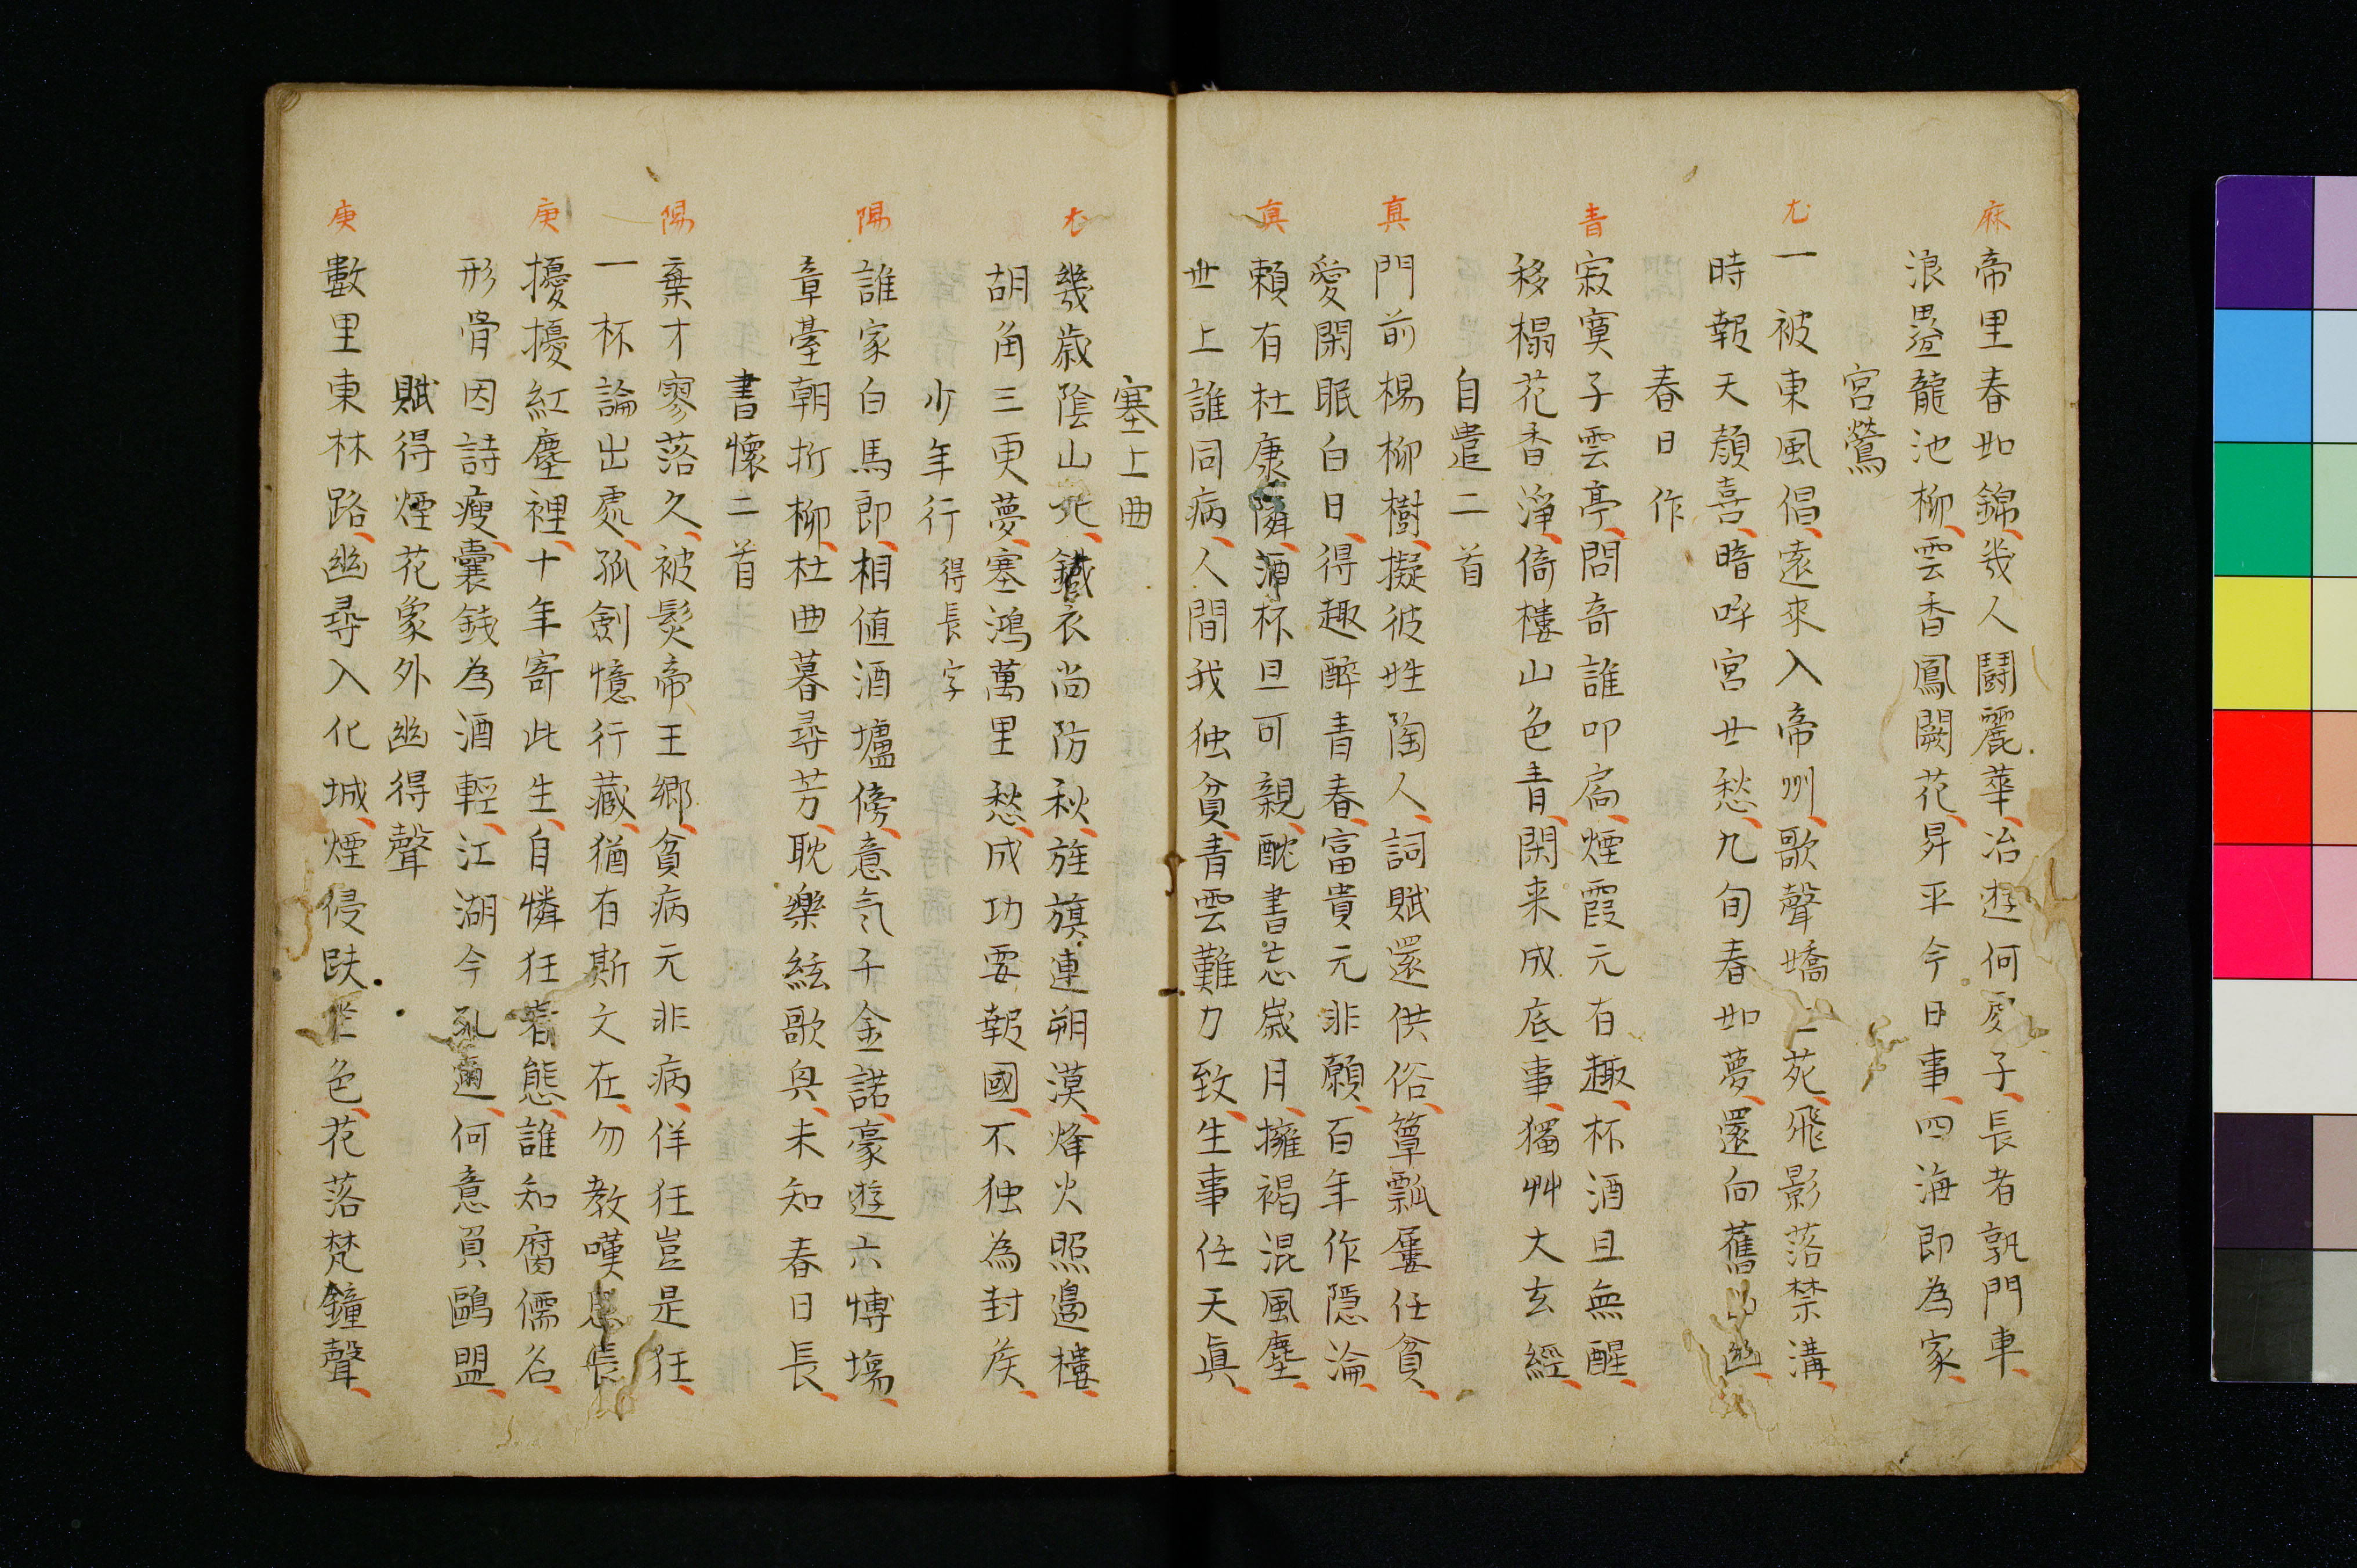 麻 帝里春如錦幾人鬪麗華冶遊何處子長者孰門車
浪壘龍池柳雲香鳳闕花昇平今日事四海即為家
宮鶯
尤 一被東風倡遠來入帝州歌聲嬌上苑飛影落禁溝
時報天顏喜暗呼宮世愁九旬春如夢還向舊幽
春日作
青 寂寞子雲亭問奇誰叩扃煙霞元有趣杯酒且無醒
移榻花香淨倚樓山色青閑来成底事獨艸大玄經
自遣二首
真 門前楊柳樹擬彼姓陶人詞賦還供俗簞瓢屢任貧
愛閑眠白日得趣醉青春富貴元非願百年作隱淪
真 賴有杜康隣酒杯且可親酖書忘歳月擁褐混風塵
世上誰同病人間我独貧青雲難力致生事任天真
塞上曲
尤 幾歳陰山北鐵衣尚防秋旌旗連朔漠烽火照邉樓
胡角三更夢塞鴻萬里愁成功要報國不独為封矦
少年行 得長字
陽 誰家白馬郎相値酒壚傍意氣千金諾豪遊六博塲
章臺朝折柳杜曲暮尋芳耽樂絃歌臾未知春日長
書懷二首
陽 棄才寥落久被髪帝王鄉貧病元非病佯狂豈是狂
一杯論出處孤劍憶行藏猶有斯文在勿教嘆長
庚 擾擾紅塵裡十年寄此生自憐狂者態誰知腐儒名
形骨因詩瘦囊錢為酒輕江湖今邇何意負鷗盟
賦得煙花象外幽得聲
庚 數里東林路幽尋入化城煙侵趺色花落梵鐘聲